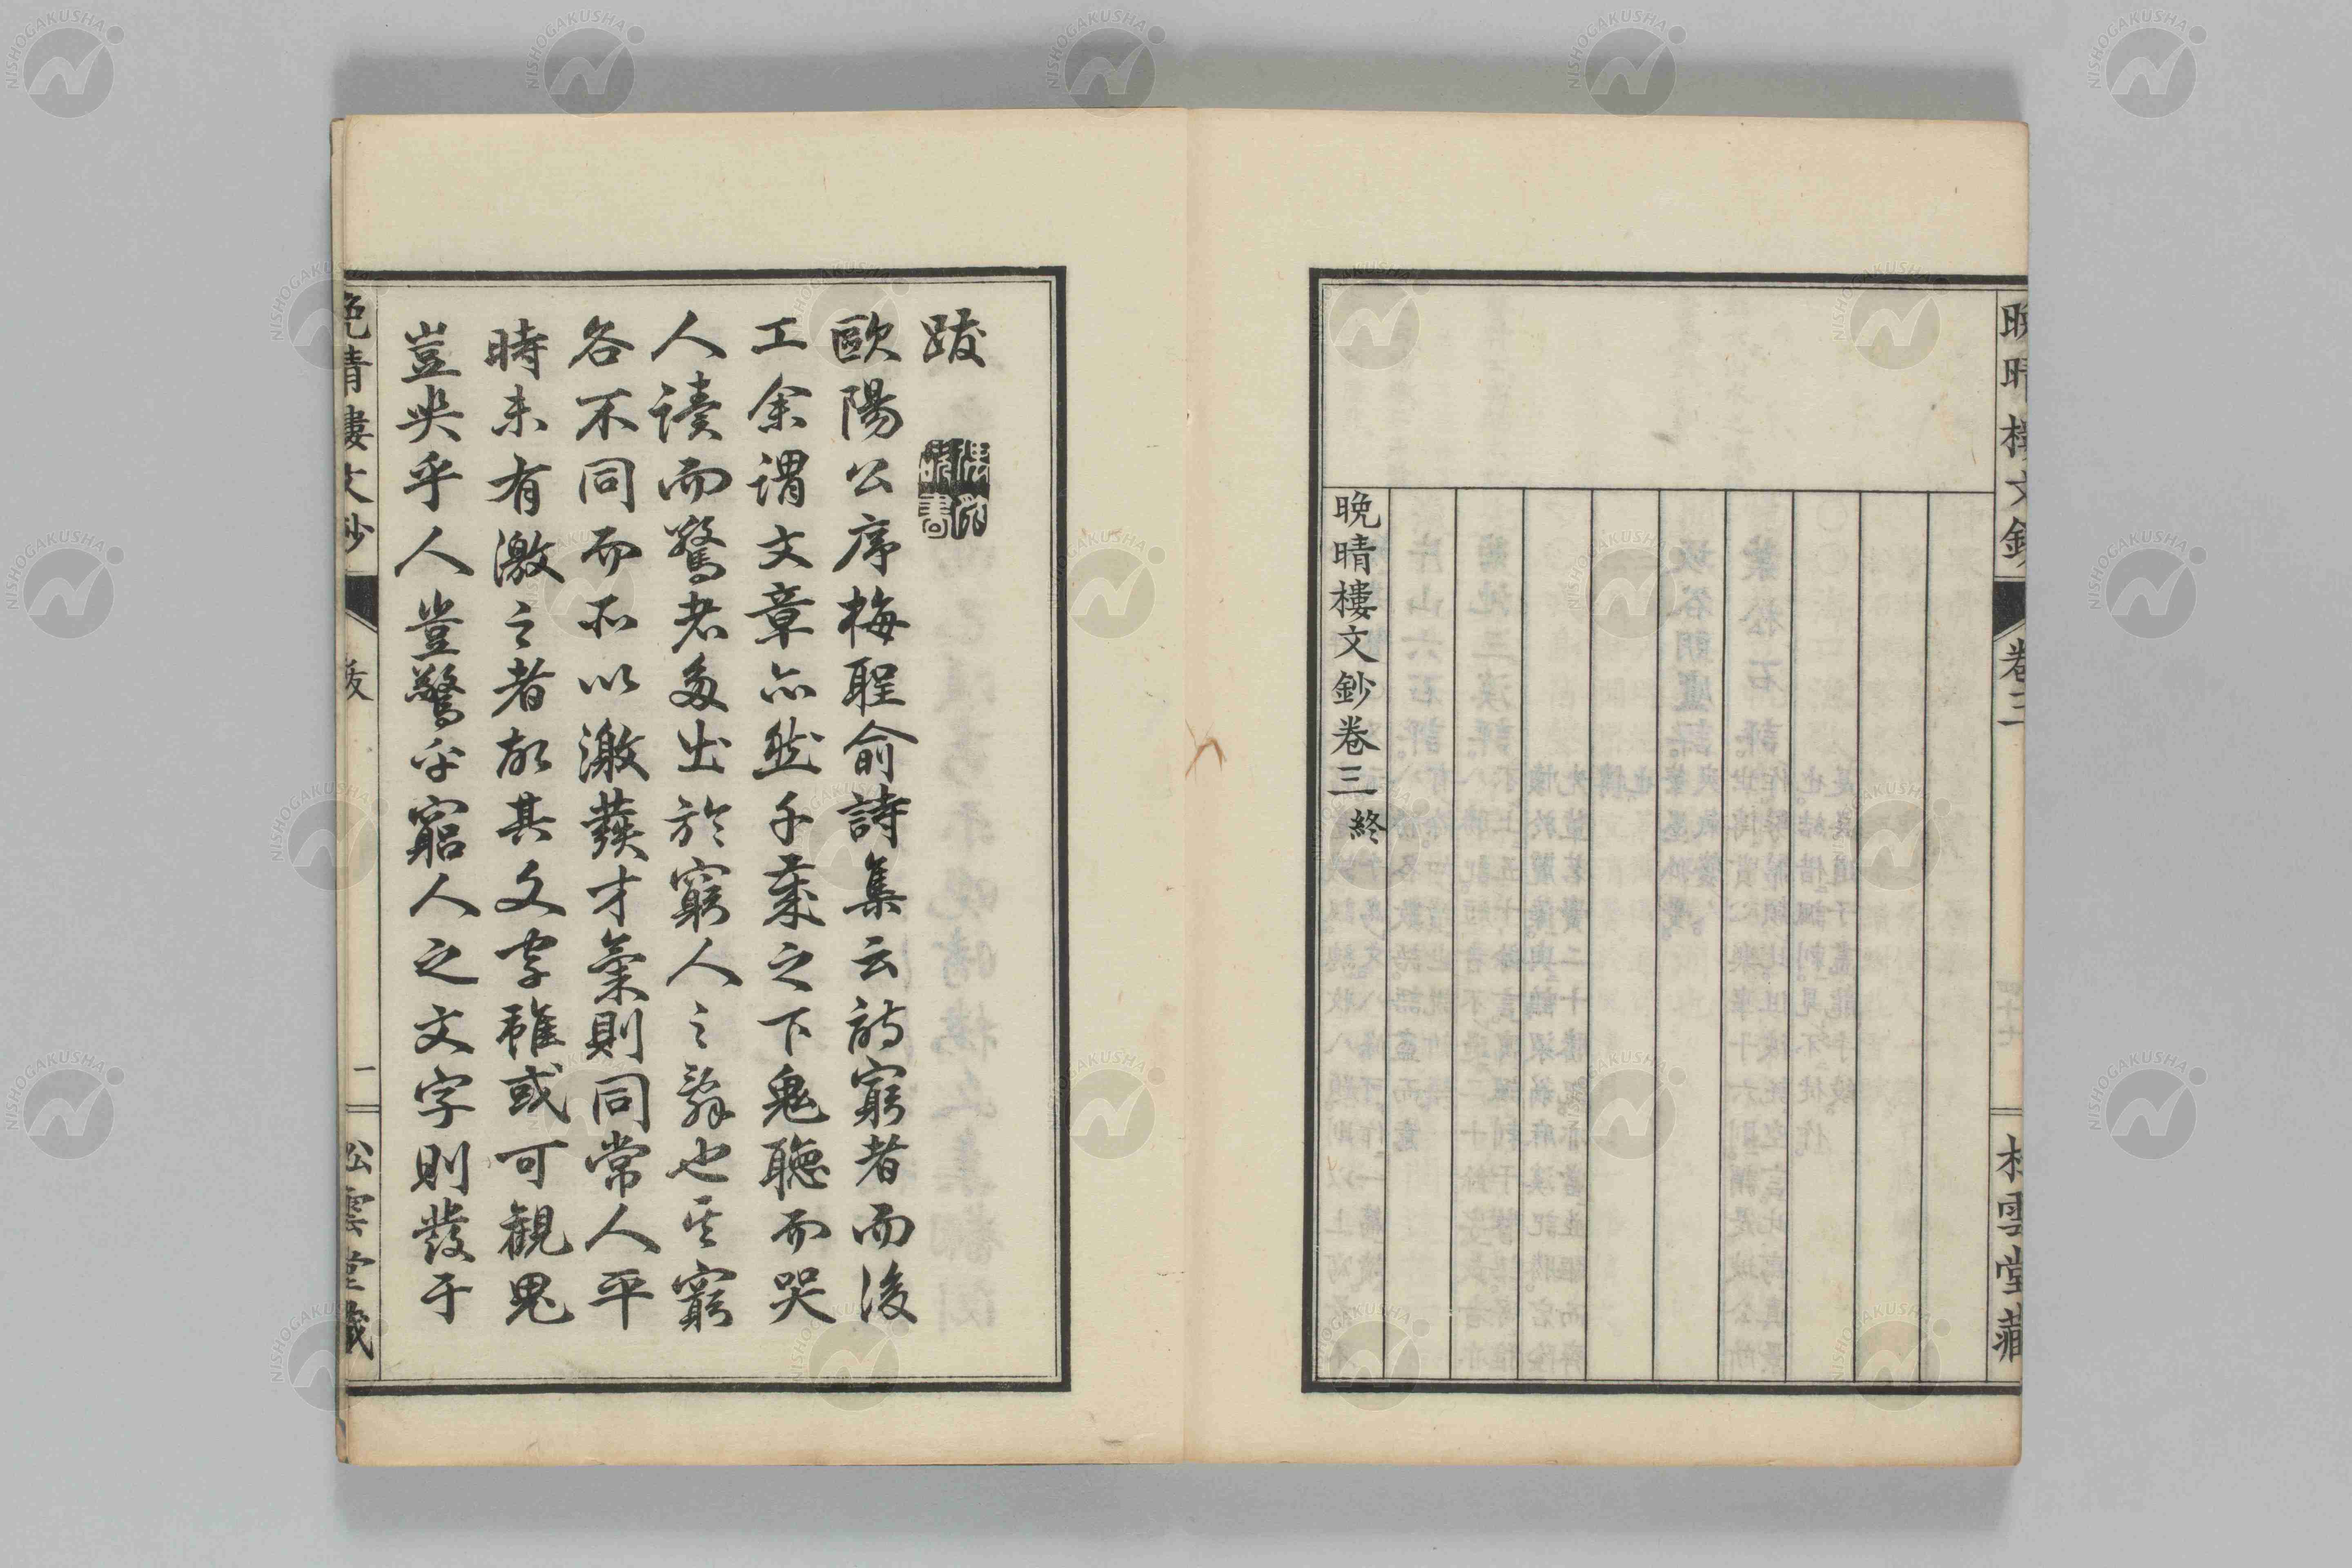 晩晴樓文鈔
卷三
松雲堂藏
晩晴樓文鈔卷三終
跋
歐陽公序梅聖俞詩集云詩窮者而後
工余謂文章亦然千載之下鬼聽而哭
人讀而驚者多出於窮人之辭也其窮
各不同而所以激發才氣則同常人平
時未有激之者故其文字雖或可觀鬼
豈哭乎人豈驚乎窮人之文字則發于
晩晴樓文鈔
跋
一
松雲堂藏
NISHOGAKUSHA